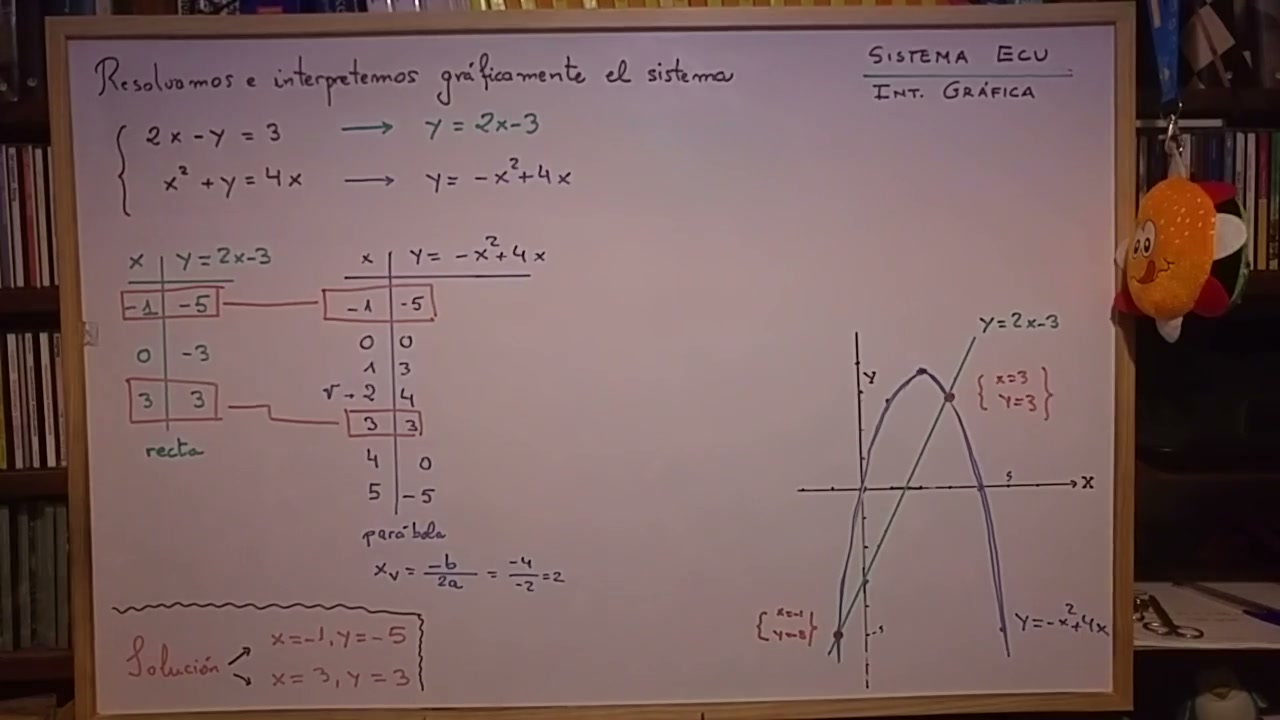 Resolvamos e interpretemos gráficamente el sistema
SISTEMA ECU
INT. GRÁFICA
2x - y = 3 → y = 2x-3
x² + y = 4x → y = -x²+4x
x | y = 2x-3
-1 | -5
0 | -3
3 | 3
recta
x | y = -x²+4x
-1 | -5
0 | 0
1 | 3
V → 2 | 4
3 | 3
4 | 0
5 | -5
parábola
x_v = -b/2a = -4/-2 = 2
Solución
x=-1, y=-5
x=3, y=3
y=2x-3
Y
{x=3
y=3}
5
X
-5
{x=-1
y=-5}
y=-x²+4x